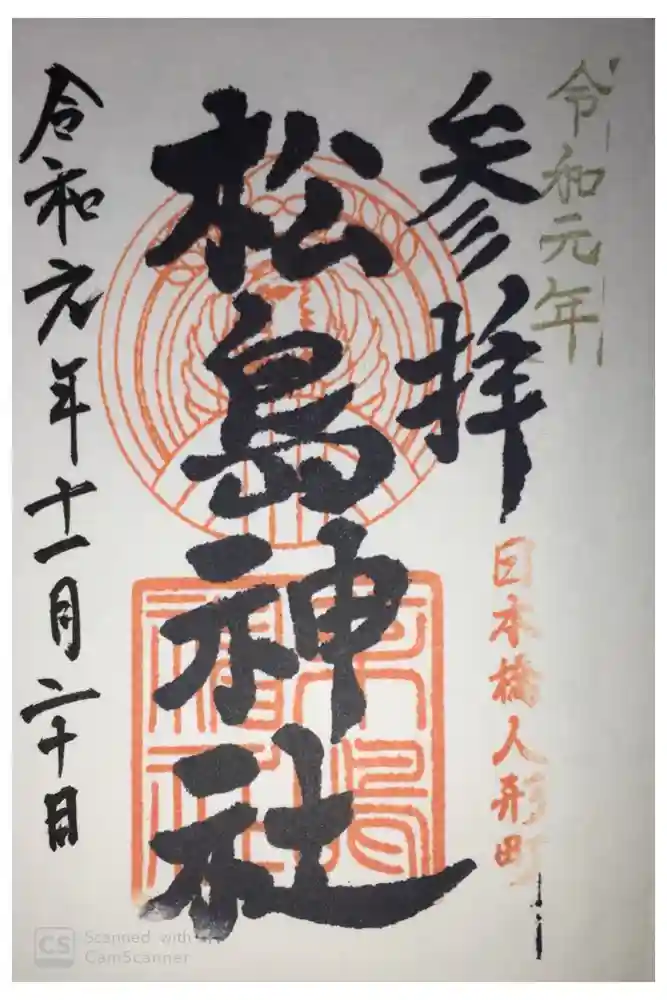 令和元年
参拝
日本橋人形町
松島神社
令和元年十一月二十日
CS Scanned with
CamScanner